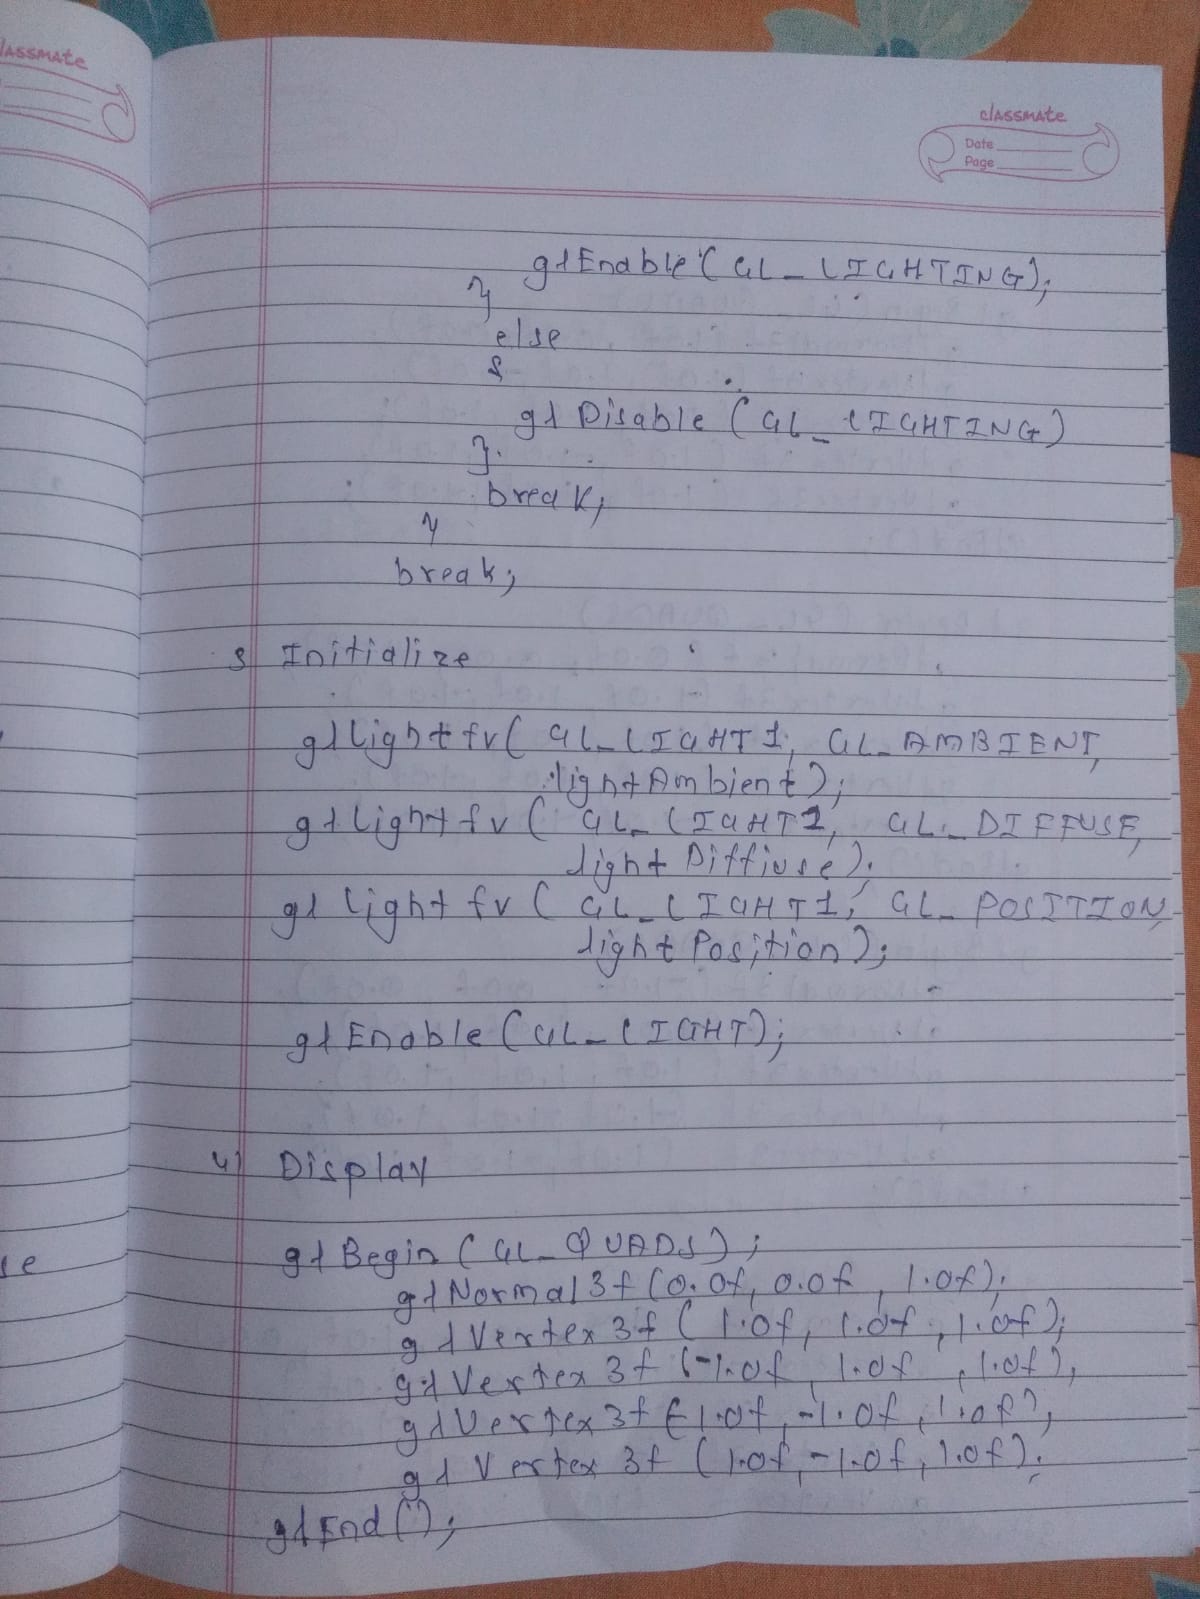 classmate
classmate
Date
Page
glEnable(GL_LIGHTING);
}
else
{
glDisable (GL_LIGHTING)
}
break;
}
break;
3 Initialize
glLightfv( GL_LIGHT1, GL_AMBIENT,
lightAmbient);
glLightfv( GL_LIGHT1, GL_DIFFUSE,
lightDiffuse);
glLightfv( GL_LIGHT1, GL_POSITION,
lightPosition);
glEnable(GL_LIGHT);
4) Display
glBegin(GL_QUADS);
se
glNormal3f(0.0f, 0.0f, 1.0f);
glVertex3f( 1.0f, 1.0f, 1.0f);
glVertex3f(-1.0f, 1.0f, 1.0f);
glVertex3f(-1.0f, -1.0f, 1.0f);
glVertex3f (1.0f, -1.0f, 1.0f);
glEnd();